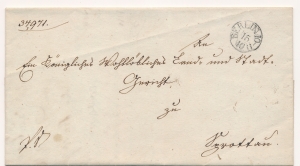 34971.
An
Ein Königliches Wohllöbliches Land- und Stadt-
Gericht
zu
Sprottau.